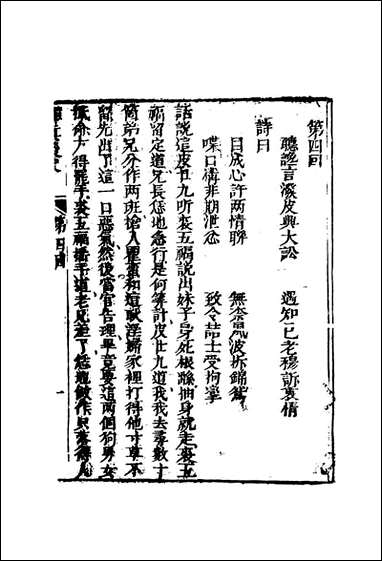 第四回
聽謡言潑皮興大訟　遇知己老穆訴衷情
詩曰
目成心許兩情聯　無奈風波拆錦鴛
喋口構非期泄忿　致令喆士受拘攣
話說這皮廿九听裘五福說出妹子身死根繇抽身就走裘五
福留定道兄長恁地急行是何筭計皮廿九道我去尋數十
箇弟兄分作兩班搶人和這㱔淫婦家裡打得他寸草不
留先出了這一口惡氣然後當官告理畢竟要這兩個狗男女
償命方得罷手裘五福搖手道老兄差了恁地做作只落得人
第四回
一